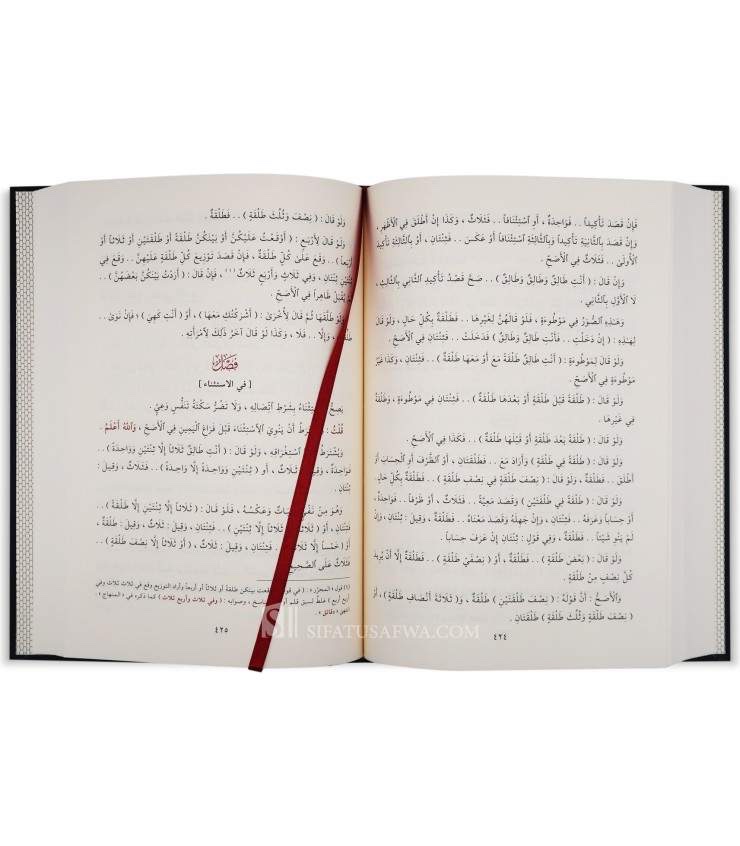 فَإِنْ قَصَدَ تَأْكِيداً . . فَوَاحِدَةٌ ، أَوِ ٱسْتِئْنَافاً . . فَثَلَاثٌ ، وَكَذَا إِنْ أَطْلَقَ فِي ٱلْأَظْهَرِ ،
وَإِنْ قَصَدَ بِٱلثَّانِيَةِ تَأْكِيداً وَبِٱلثَّالِثَةِ ٱسْتِئْنَافاً أَوْ عَكَسَ . . فَثِنْتَانِ ، أَوْ بِٱلثَّالِثَةِ تَأْكِيدَ
ٱلْأُولَىٰ . . فَثَلَاثٌ فِي ٱلْأَصَحِّ .
وَإِنْ قَالَ : ( أَنْتِ طَالِقٌ وَطَالِقٌ وَطَالِقٌ ) . . صَحَّ قَصْدُ تَأْكِيدِ ٱلثَّانِي بِٱلثَّالِثِ ،
لَا ٱلْأَوَّلِ بِٱلثَّانِي .
وَهَـٰذِهِ ٱلصُّوَرُ فِي مَوْطُوءَةٍ ، فَلَوْ قَالَهُنَّ لِغَيْرِهَا . . فَطَلْقَةٌ بِكُلِّ حَالٍ ، وَلَوْ قَالَ
لِهَـٰذِهِ : ( إِنْ دَخَلْتِ . . فَأَنْتِ طَالِقٌ وَطَالِقٌ ) فَدَخَلَتْ . . فَثِنْتَانِ فِي ٱلْأَصَحِّ .
وَلَوْ قَالَ لِمَوْطُوءَةٍ : ( أَنْتِ طَالِقٌ طَلْقَةً مَعَ أَوْ مَعَهَا طَلْقَةٌ ) . . فَثِنْتَانِ ، وَكَذَا غَيْرُ
مَوْطُوءَةٍ فِي ٱلْأَصَحِّ .
وَلَوْ قَالَ : ( طَلْقَةً قَبْلَ طَلْقَةٍ أَوْ بَعْدَهَا طَلْقَةٌ ) . . فَثِنْتَانِ فِي مَوْطُوءَةٍ ، وَطَلْقَةٌ
فِي غَيْرِهَا .
وَلَوْ قَالَ : ( طَلْقَةً بَعْدَ طَلْقَةٍ أَوْ قَبْلَهَا طَلْقَةٌ ) . . فَكَذَا فِي ٱلْأَصَحِّ .
وَلَوْ قَالَ : ( طَلْقَةً فِي طَلْقَةٍ ) وَأَرَادَ مَعَ . . فَطَلْقَتَانِ ، أَوِ ٱلظَّرْفَ أَوِ ٱلْحِسَابَ أَوْ
أَطْلَقَ . . فَطَلْقَةٌ ، وَلَوْ قَالَ : ( نِصْفَ طَلْقَةٍ فِي نِصْفِ طَلْقَةٍ ) . . فَطَلْقَةٌ بِكُلِّ حَالٍ .
وَلَوْ قَالَ : ( طَلْقَةً فِي طَلْقَتَيْنِ ) وَقَصَدَ مَعِيَّةً . . فَثَلَاثٌ ، أَوْ ظَرْفاً . . فَوَاحِدَةٌ ،
أَوْ حِسَاباً وَعَرَفَهُ . . فَثِنْتَانِ ، وَإِنْ جَهِلَهُ وَقَصَدَ مَعْنَاهُ . . فَطَلْقَةٌ ، وَقِيلَ : ثِنْتَانِ ، وَإِنْ
لَمْ يَنْوِ شَيْئاً . . فَطَلْقَةٌ ، وَفِي قَوْلٍ : ثِنْتَانِ إِنْ عَرَفَ حِسَاباً .
وَلَوْ قَالَ : ( بَعْضَ طَلْقَةٍ ) . . فَطَلْقَةٌ ، أَوْ ( نِصْفَيْ طَلْقَةٍ ) . . فَطَلْقَةٌ إِلَّا أَنْ يُرِيدَ
كُلَّ نِصْفٍ مِنْ طَلْقَةٍ .
وَٱلْأَصَحُّ : أَنَّ قَوْلَهُ : ( نِصْفَ طَلْقَتَيْنِ ) طَلْقَةٌ ، وَ( ثَلَاثَةَ أَنْصَافِ طَلْقَةٍ ) ،
( نِصْفَ طَلْقَةٍ وَثُلُثَ طَلْقَةٍ ) طَلْقَتَانِ .
٤٢٤
وَلَوْ قَالَ : ( نِصْفَ وَثُلُثَ طَلْقَةٍ ) . . فَطَلْقَةٌ .
وَلَوْ قَالَ لِأَرْبَعٍ : ( أَوْقَعْتُ عَلَيْكُنَّ أَوْ بَيْنَكُنَّ طَلْقَةً أَوْ طَلْقَتَيْنِ أَوْ ثَلَاثاً أَوْ
أَرْبَعاً ) . . وَقَعَ عَلَىٰ كُلٍّ طَلْقَةٌ ، فَإِنْ قَصَدَ تَوْزِيعَ كُلِّ طَلْقَةٍ عَلَيْهِنَّ . . وَقَعَ فِي
ثِنْتَيْنِ ثِنْتَانِ ، وَفِي ثَلَاثٍ وَأَرْبَعٍ ثَلَاثٌ (١) ، فَإِنْ قَالَ : ( أَرَدْتُ بَيْنَكُنَّ بَعْضَهُنَّ ) . .
لَمْ يُقْبَلْ ظَاهِراً فِي ٱلْأَصَحِّ .
وَلَوْ طَلَّقَهَا ثُمَّ قَالَ لِأُخْرَىٰ : ( أَشْرَكْتُكِ مَعَهَا ) ، أَوْ ( أَنْتِ كَهِيَ ) ؛ فَإِنْ نَوَىٰ . .
طَلُقَتْ ، وَإِلَّا . . فَلَا ، وَكَذَا لَوْ قَالَ آخَرُ ذَلِكَ لِامْرَأَتِهِ .
فَصْلٌ
[ في الاستثناء ]
يَصِحُّ ٱلِٱسْتِثْنَاءُ بِشَرْطِ ٱتِّصَالِهِ ، وَلَا تَضُرُّ سَكْتَةُ تَنَفُّسٍ وَعِيٍّ .
قُلْتُ : وَيُشْتَرَطُ أَنْ يَنْوِيَ ٱلِٱسْتِثْنَاءَ قَبْلَ فَرَاغِ ٱلْيَمِينِ فِي ٱلْأَصَحِّ ، وَٱللهُ أَعْلَمُ .
وَيُشْتَرَطُ عَدَمُ ٱسْتِغْرَاقِهِ ، وَلَوْ قَالَ : ( أَنْتِ طَالِقٌ ثَلَاثاً إِلَّا ثِنْتَيْنِ وَوَاحِدَةً ) . .
فَوَاحِدَةٌ ، وَقِيلَ : ثَلَاثٌ ، أَوِ ( ثِنْتَيْنِ وَوَاحِدَةً إِلَّا وَاحِدَةً ) . . فَثَلَاثٌ ، وَقِيلَ :
ثِنْتَانِ .
وَهُوَ مِنْ نَفْيٍ إِثْبَاتٌ وَعَكْسُهُ ، فَلَوْ قَالَ : ( ثَلَاثاً إِلَّا ثِنْتَيْنِ إِلَّا طَلْقَةً ) . .
فَثِنْتَانِ ، أَوْ ( ثَلَاثاً إِلَّا ثَلَاثاً إِلَّا ثِنْتَيْنِ ) . . فَثِنْتَانِ ، وَقِيلَ : ثَلَاثٌ ، وَقِيلَ : طَلْقَةٌ ،
أَوْ ( خَمْساً إِلَّا ثَلَاثاً ) . . فَثِنْتَانِ ، وَقِيلَ : ثَلَاثٌ ، أَوْ ( ثَلَاثاً إِلَّا نِصْفَ طَلْقَةٍ ) . .
فَثَلَاثٌ عَلَى ٱلصَّحِيحِ .
(١) قول « المحرر » : ( في قوله : أوقعت بينكن طلقة أو ثلاثاً أو أربعاً وأراد التوزيع وقع في ثلاث ثلاث وفي
أربع أربع ) غلط نسبق قلم أو من الناسخ ، وصوابه : ( وفي ثلاث وأربع ثلاث ) كما ذكره في « المنهاج » ؛
انتهى « دقائق » .
٤٢٥
SIFATUSAFWA.COM